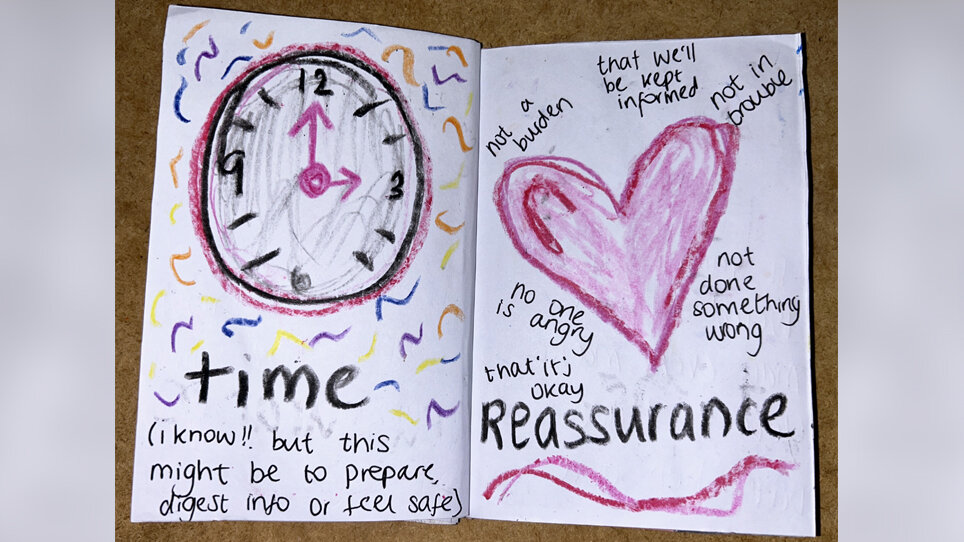 12
9
3
time
(i know!! but this
might be to prepare,
digest info or feel safe)
not a
burden
that we'll
be kept
informed
not in
trouble
no one
is angry
not
done
something
wrong
that it's
okay
Reassurance